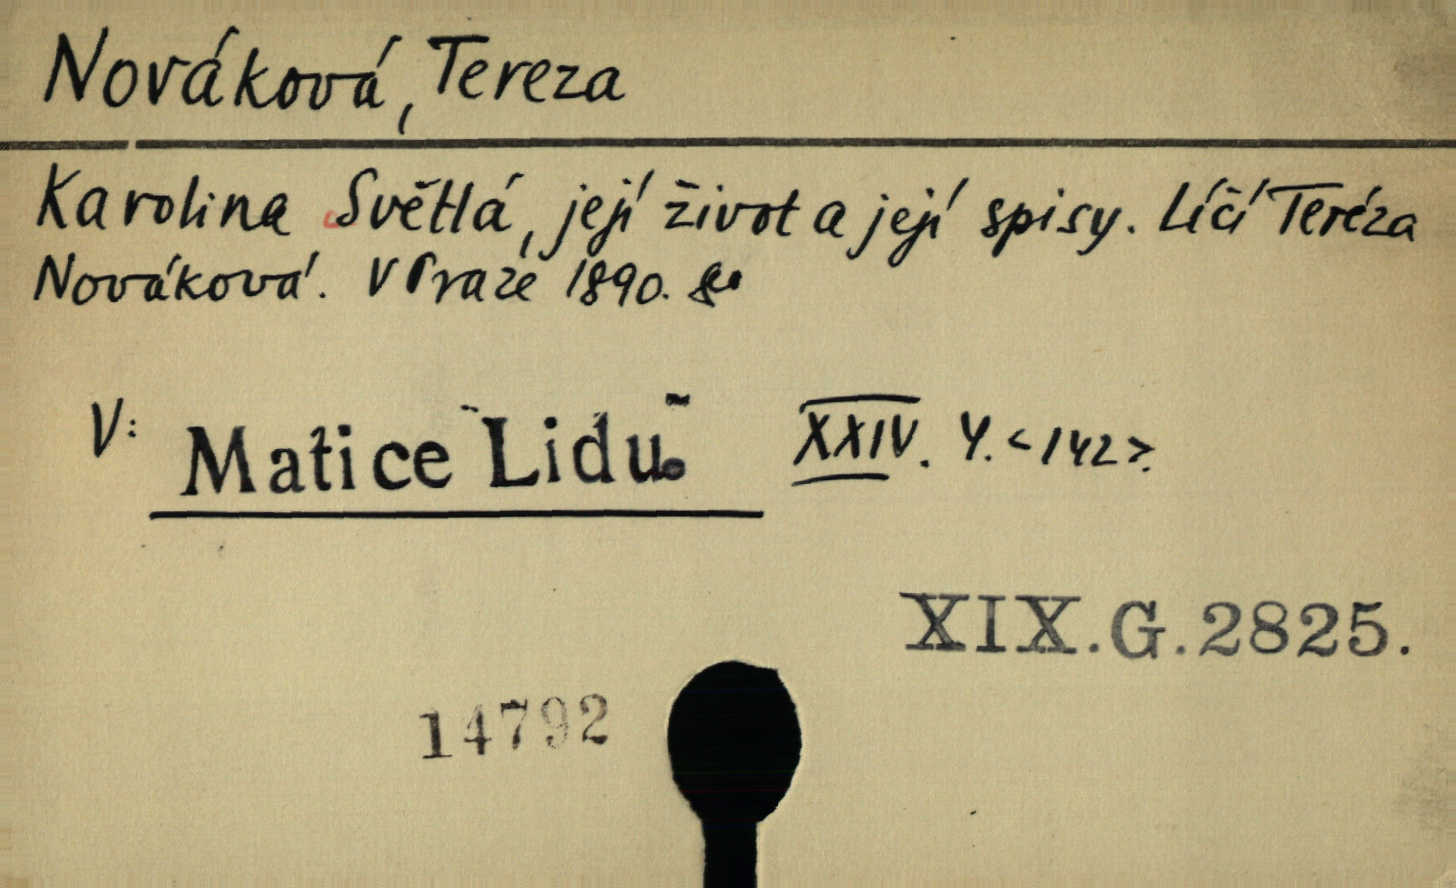 Nováková, Tereza
Karolina Světlá, její život a její spisy. Líčí Teréza
Nováková. V Praze 1890. 8°
V: Matice Lidu. XXIV. 4. <142>.
XIX.G.2825.
14792